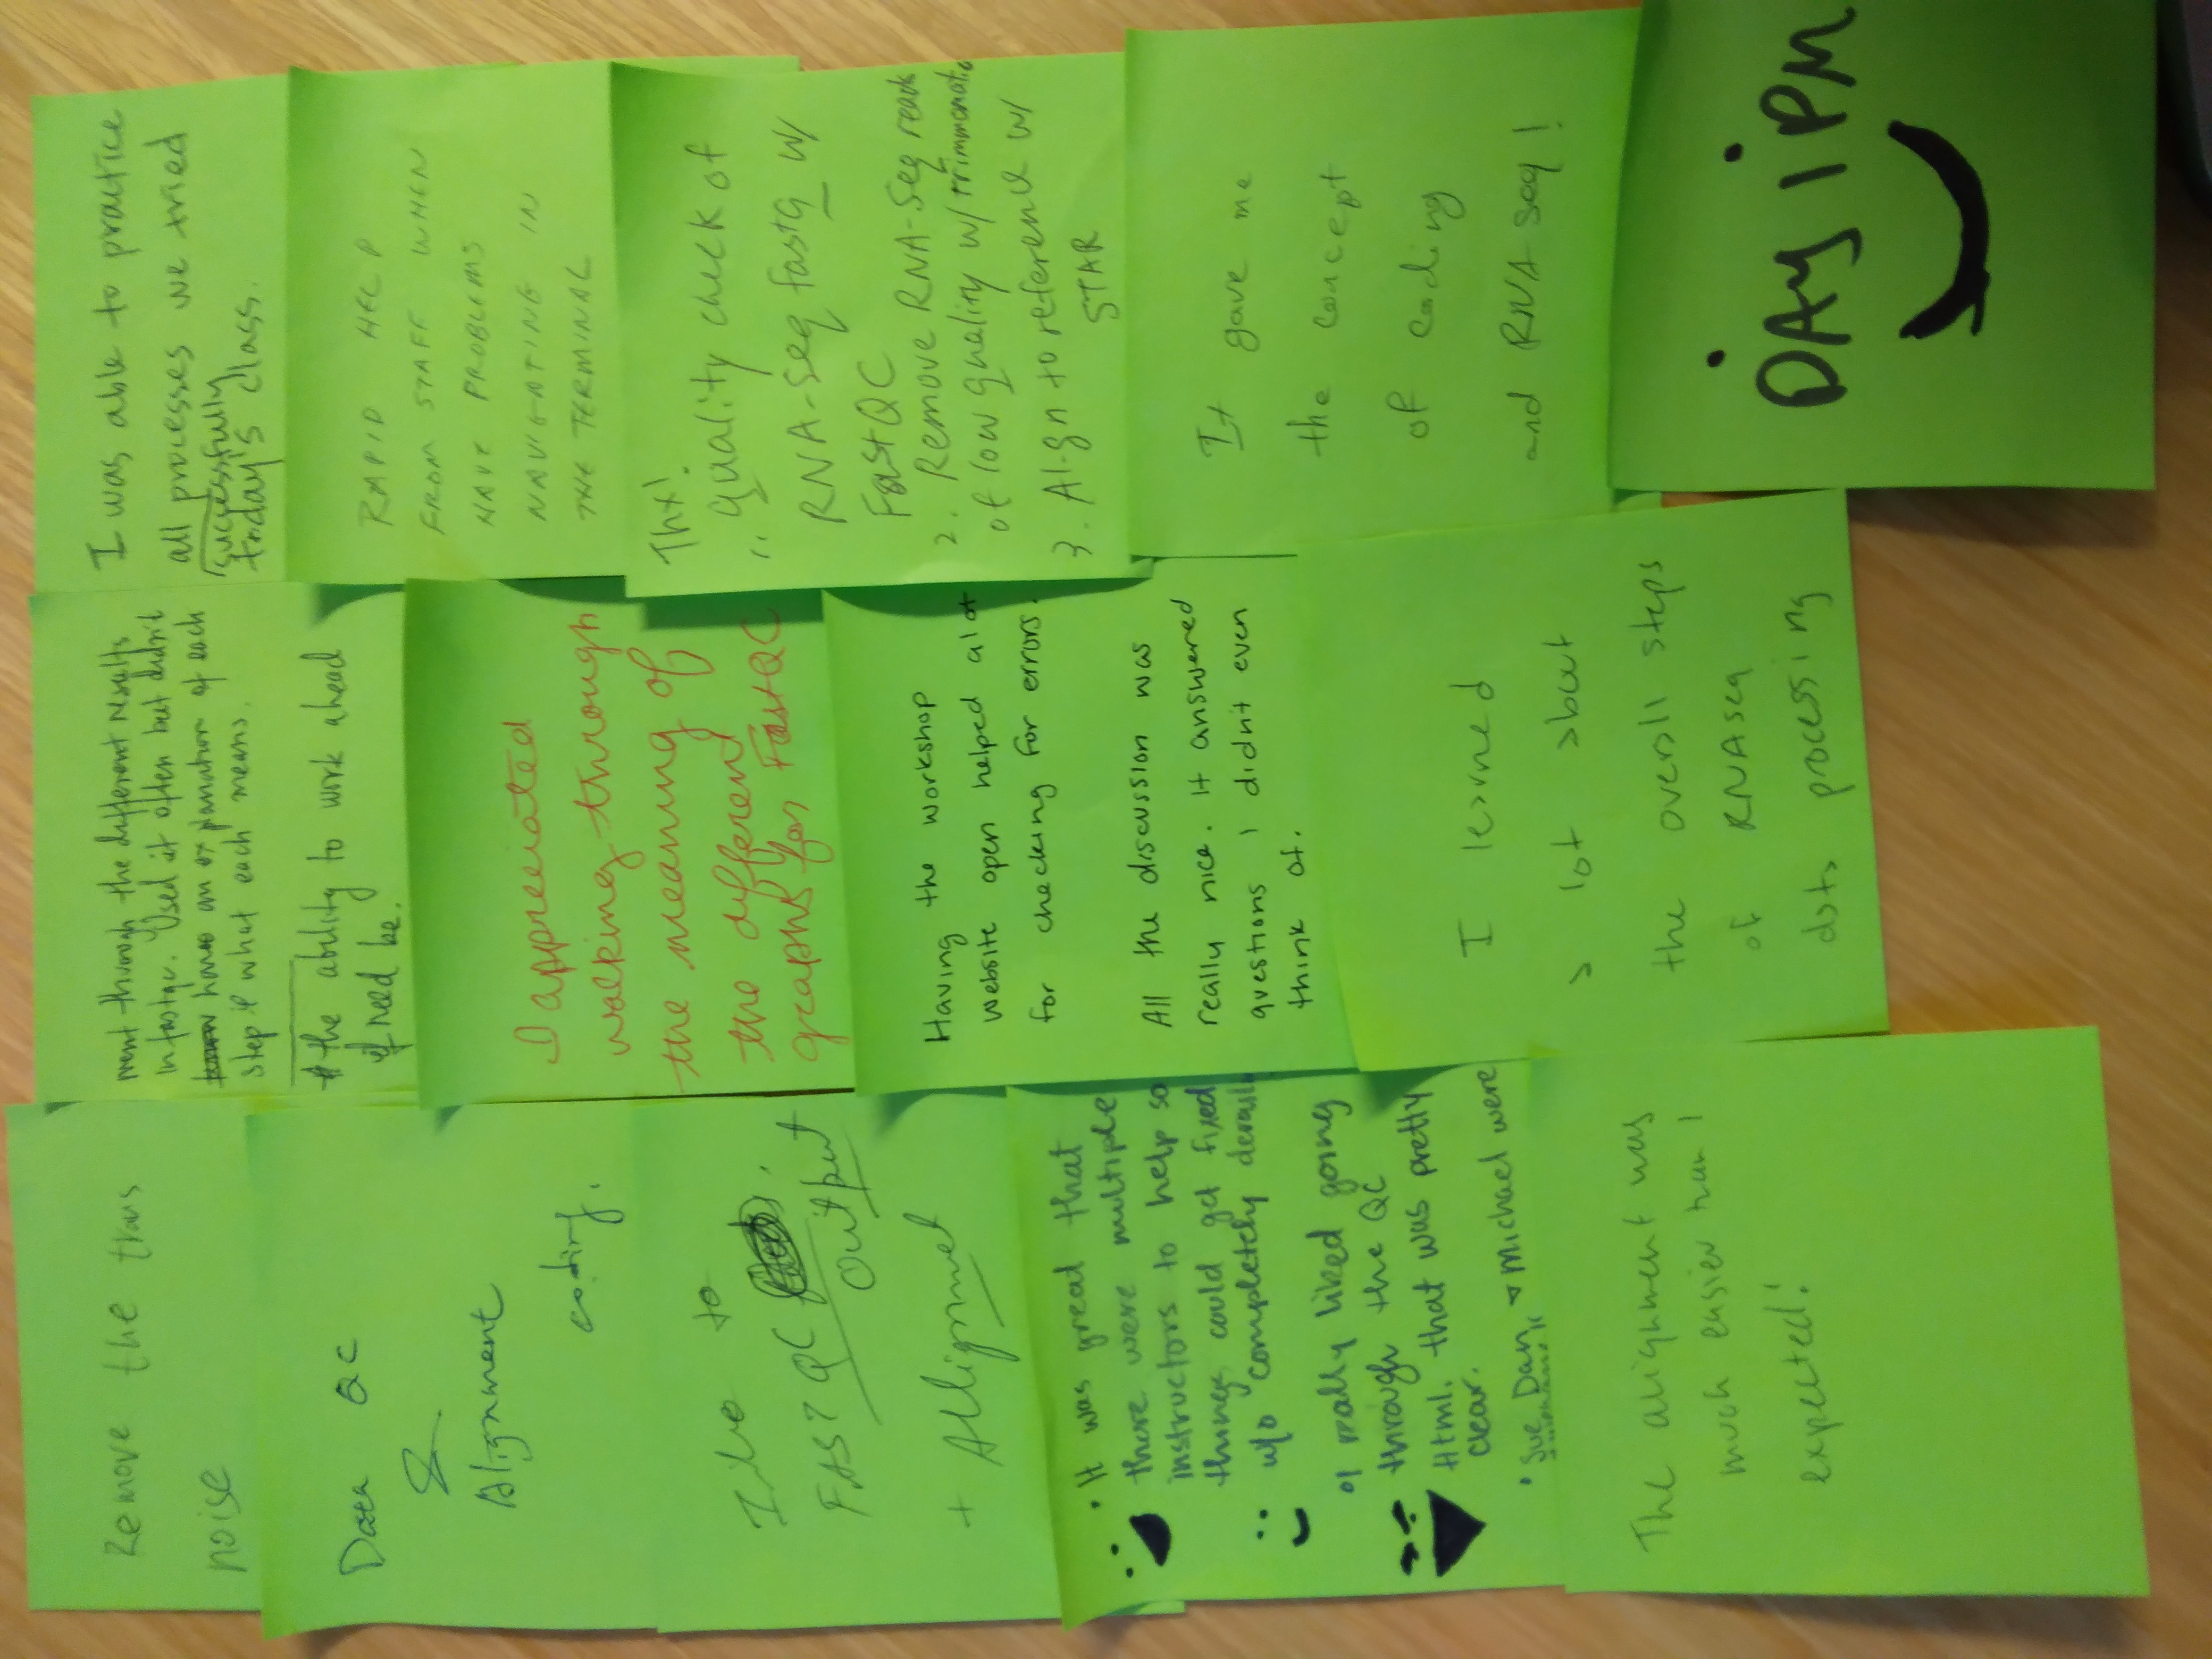 Remove the trans
noise
Data QC
&
Alignment
coding.
Intro to
FAST QC
Output
+ Allignmet
• It was great that
there were multiple
instructors to help so
things could get fixed
w/o completely derail
• I really liked going
through the QC
Html. that was pretty
clear.
• Sue, Dan, & Michael were
The alignment was
much easier than I
expected!
went through the different results
in fastqc. Used it often but didn't
know have an explanation of each
step & what each means.
* the ability to work ahead
if need be.
I appreciated
walking through
the meaning of
the different
graphs for FastQC
Having the workshop
website open helped alot
for checking for errors.
All the discussion was
really nice. It answered
questions I didn't even
think of.
I learned
a lot about
the overall steps
of RNAseq
data processing
I was able to practice
all processes we tried
successfully
today's class.
RAPID HELP
FROM STAFF WHEN
HAVE PROBLEMS
NAVIGATING IN
THE TERMINAL
Thx!
1. quality check of
RNA-seq fastq w/
FastQC
2. Remove RNA-Seq reads
of low quality w/ trimmomatic
3. Align to reference w/
STAR
It gave me
the concept
of coding
and RNA seq!
DAY 1 PM